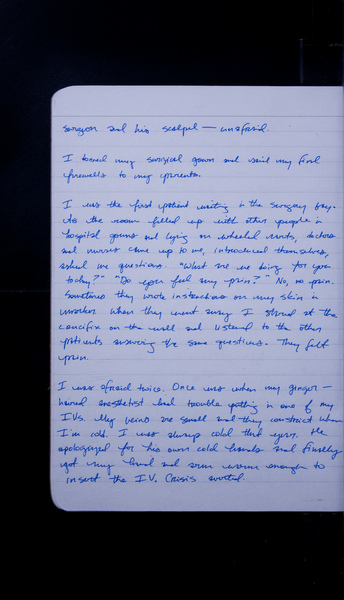 surgeon and his scalpel — unafraid.
I my surgical gown and said my final
farewells to my parents.
I was the first patient waiting in the surgery bay.
As the room filled up with other people in
hospital gowns and lying on wheeled cots, doctors
and nurses came up to me, introduced themselves,
asked me questions. "What are we doing for you
today?" "Do you feel any pain?" No, no pain.
Sometimes they wrote instructions on my skin in
marker. When they went away I stared at the
crucifix on the wall and listened to the other
patients answering the same questions. They felt
pain.
I was afraid twice. Once was when my ginger-
haired anesthetist had trouble putting in one of my
IVs. My veins are small and they constrict when
I'm cold. I was always cold that year. He
apologized for his own cold hands and finally
got my hand and arm warm enough to
insert the I.V. Crisis averted.